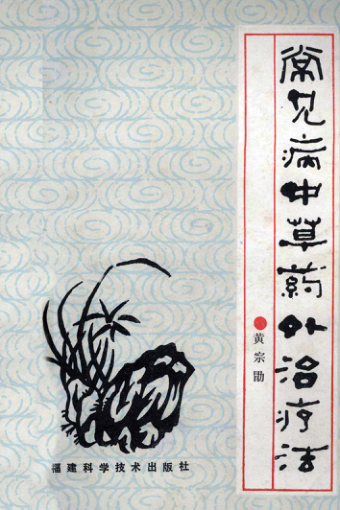 常见病中草药外治疗法
黄宗勖
福建科学技术出版社